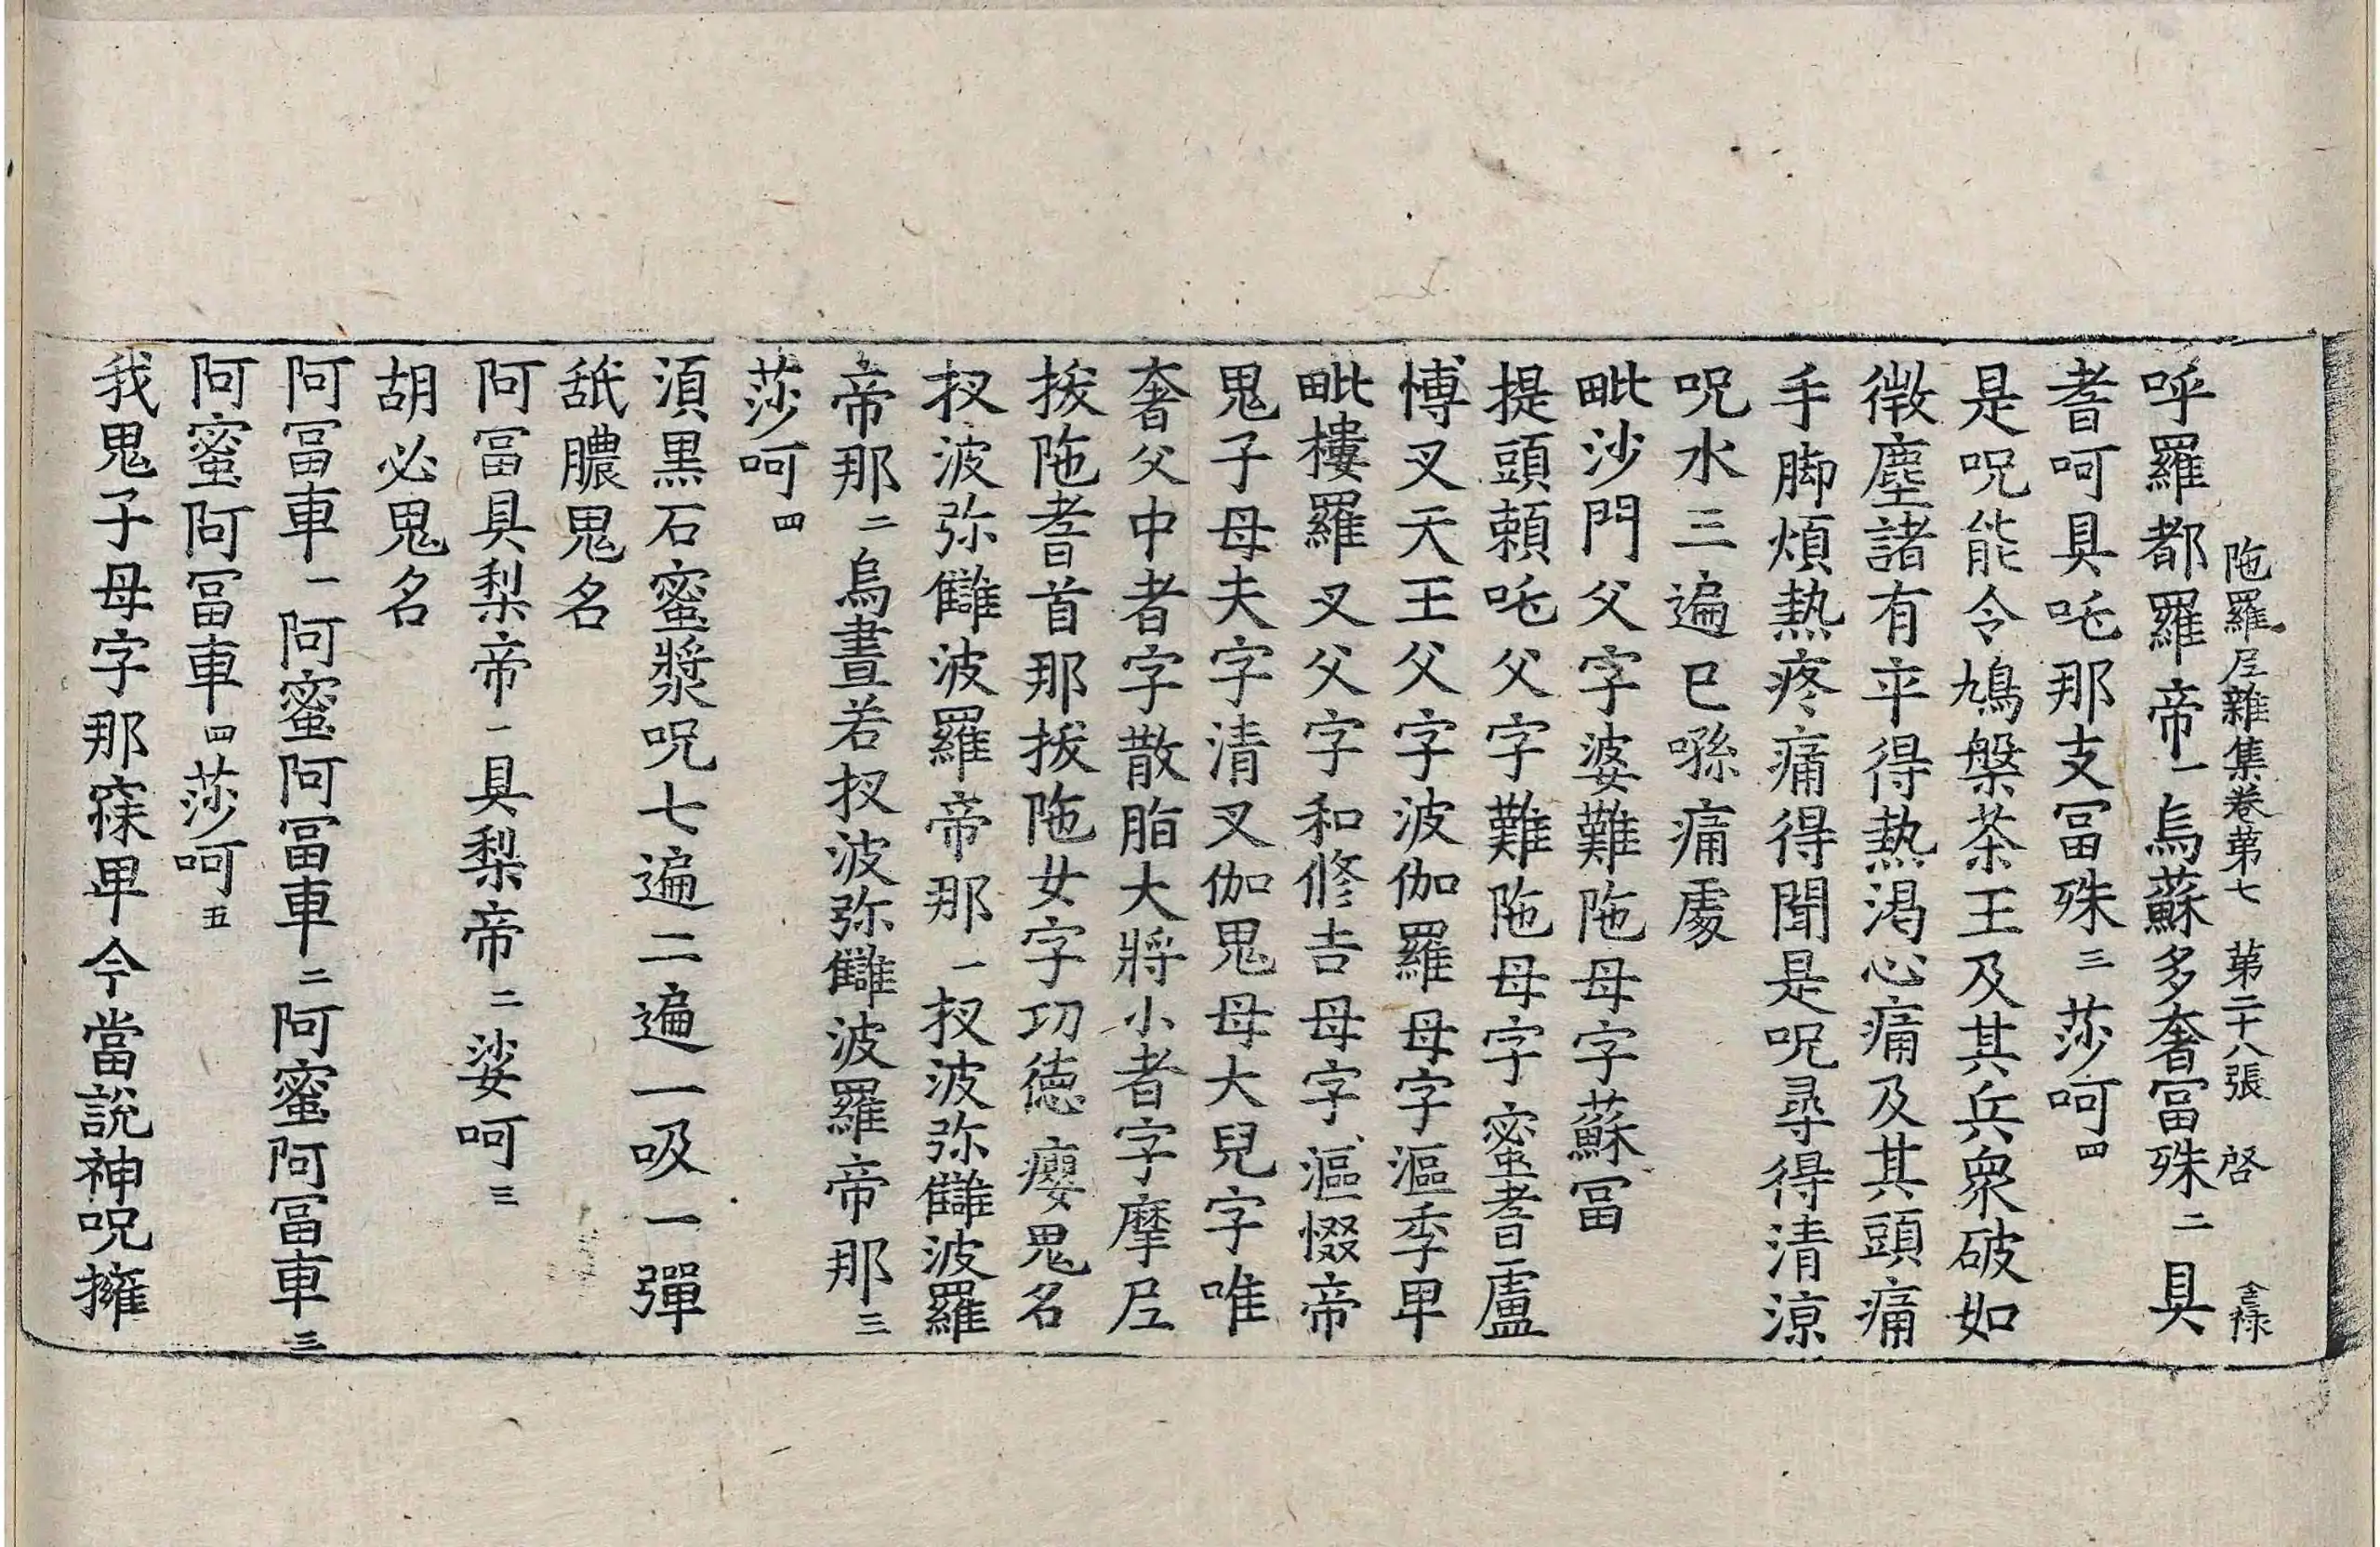 陁羅尼雜集卷苐七　苐二十八張　啓　金祿
呼羅都羅帝一烏蘇多奢冨殊二具
耆呵具吒那支冨殊三莎呵四
是呪能令鳩槃茶王及其兵衆破如
微塵諸有卒得熱渇心痛及其頭痛
手脚煩熱疼痛得聞是呪尋得清涼
呪水三遍已噀痛處
毗沙門父字婆難陁母字蘇冨
提頭頼吒父字難陁母字蜜耆盧
博叉天王父字波伽羅母字漚季卑
毗樓羅叉父字和修吉母字漚惙帝
鬼子母夫字清叉伽鬼母大兒字唯
奢父中者字散脂大將小者字摩尼
拔陁耆首那拔陁女字功徳癭鬼名
扠波弥讎波羅帝那一扠波弥讎波羅
帝那二烏晝若扠波弥讎波羅帝那三
莎呵四
湏黒石蜜漿呪七遍二遍一吸一彈
舐膿鬼名
阿冨具梨帝一具梨帝二娑呵三
胡必鬼名
阿冨車一阿蜜阿冨車二阿蜜阿冨車三
阿蜜阿冨車四莎呵五
我鬼子母字那䆘卑今當說神呪擁